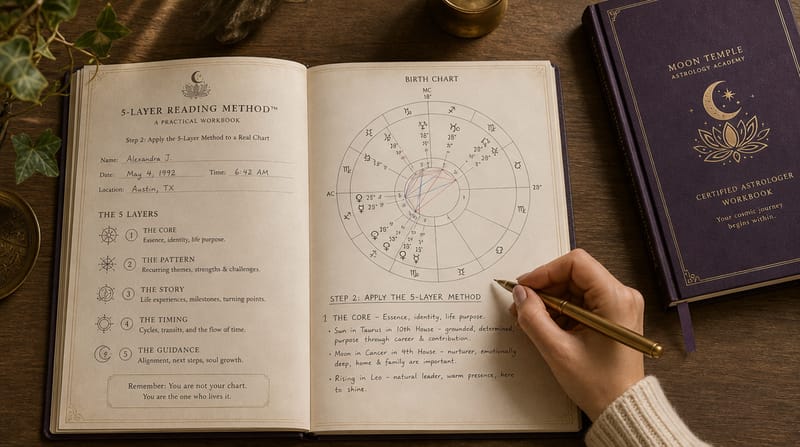 5-LAYER READING METHOD™
A PRACTICAL WORKBOOK
Step 2: Apply the 5-Layer Method to a Real Chart
Name: Alexandra J.
Date: May 4, 1992 Time: 6:42 AM
Location: Austin, TX
THE 5 LAYERS
1 THE CORE
Essence, identity, life purpose.
2 THE PATTERN
Recurring themes, strengths & challenges.
3 THE STORY
Life experiences, milestones, turning points.
4 THE TIMING
Cycles, transits, and the flow of time.
5 THE GUIDANCE
Alignment, next steps, soul growth.
Remember: You are not your chart.
You are the one who lives it.
BIRTH CHART
MC
18°
AC
28°
STEP 2: APPLY THE 5-LAYER METHOD
1 THE CORE - Essence, identity, life purpose.
• Sun in Taurus in 10th House - grounded, determined,
purpose through career & contribution.
• Moon in Cancer in 4th House - nurturer, emotionally
deep, home & family are important.
• Rising in Leo - natural leader, warm presence, here
to shine.
MOON TEMPLE
ASTROLOGY ACADEMY
CERTIFIED ASTROLOGER
WORKBOOK
Your cosmic journey
begins within.